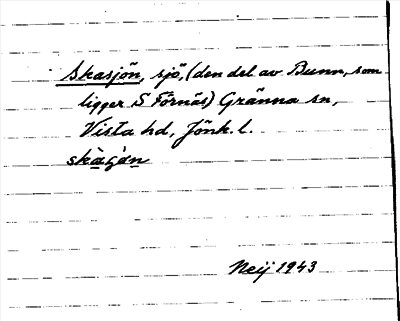 Skasjön, sjö, (den del av Bunn, som
ligger S Förnäs) Gränna sn,
Vista hd, Jönk. l.
skàgán
Neij 1943